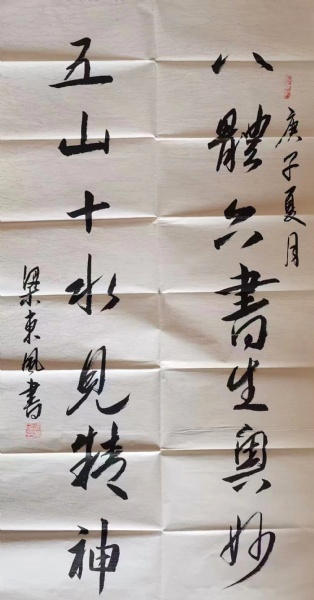 庚子夏月
八體六書生奧妙
五山十水見精神
梁東風書